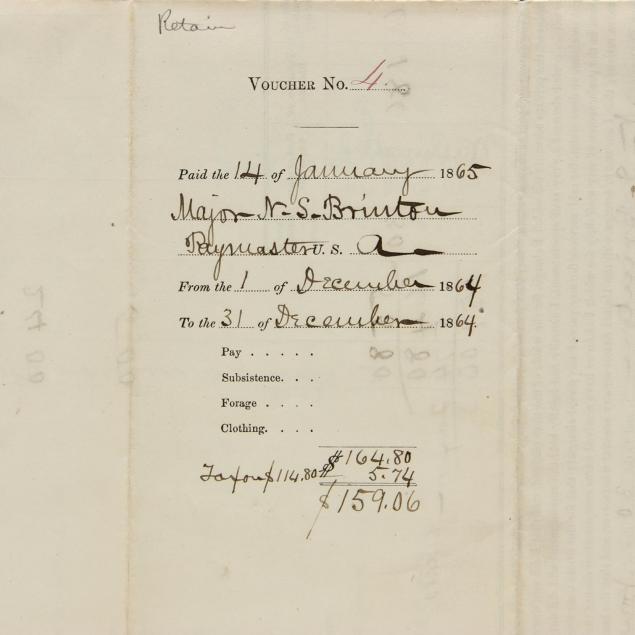 Retain
VOUCHER NO. 4
Paid the 14 of January 1865
Major N. S. Brinton
Paymaster U. S. A
From the 1 of December 1864
To the 31 of December 1864.
Pay . . . . .
Subsistence. . .
Forage . . . .
Clothing. . . .
$164.80
Tax on $114.80 $ 5.74
$159.06